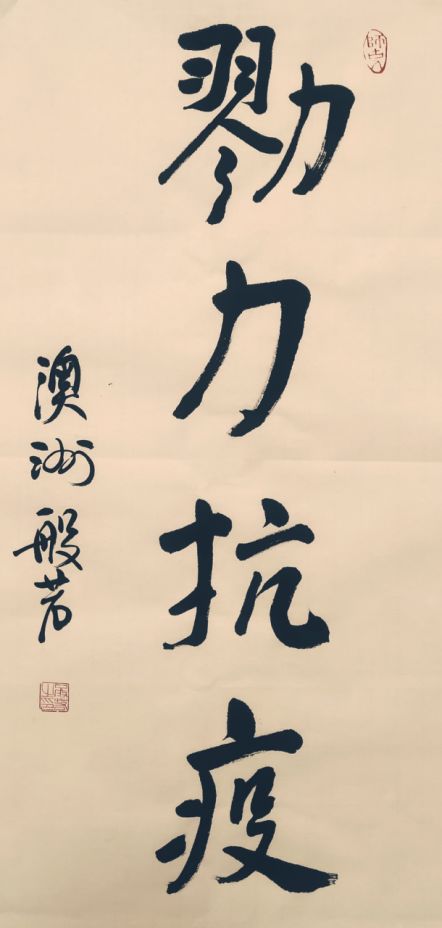 勠力抗疫
澳洲般若